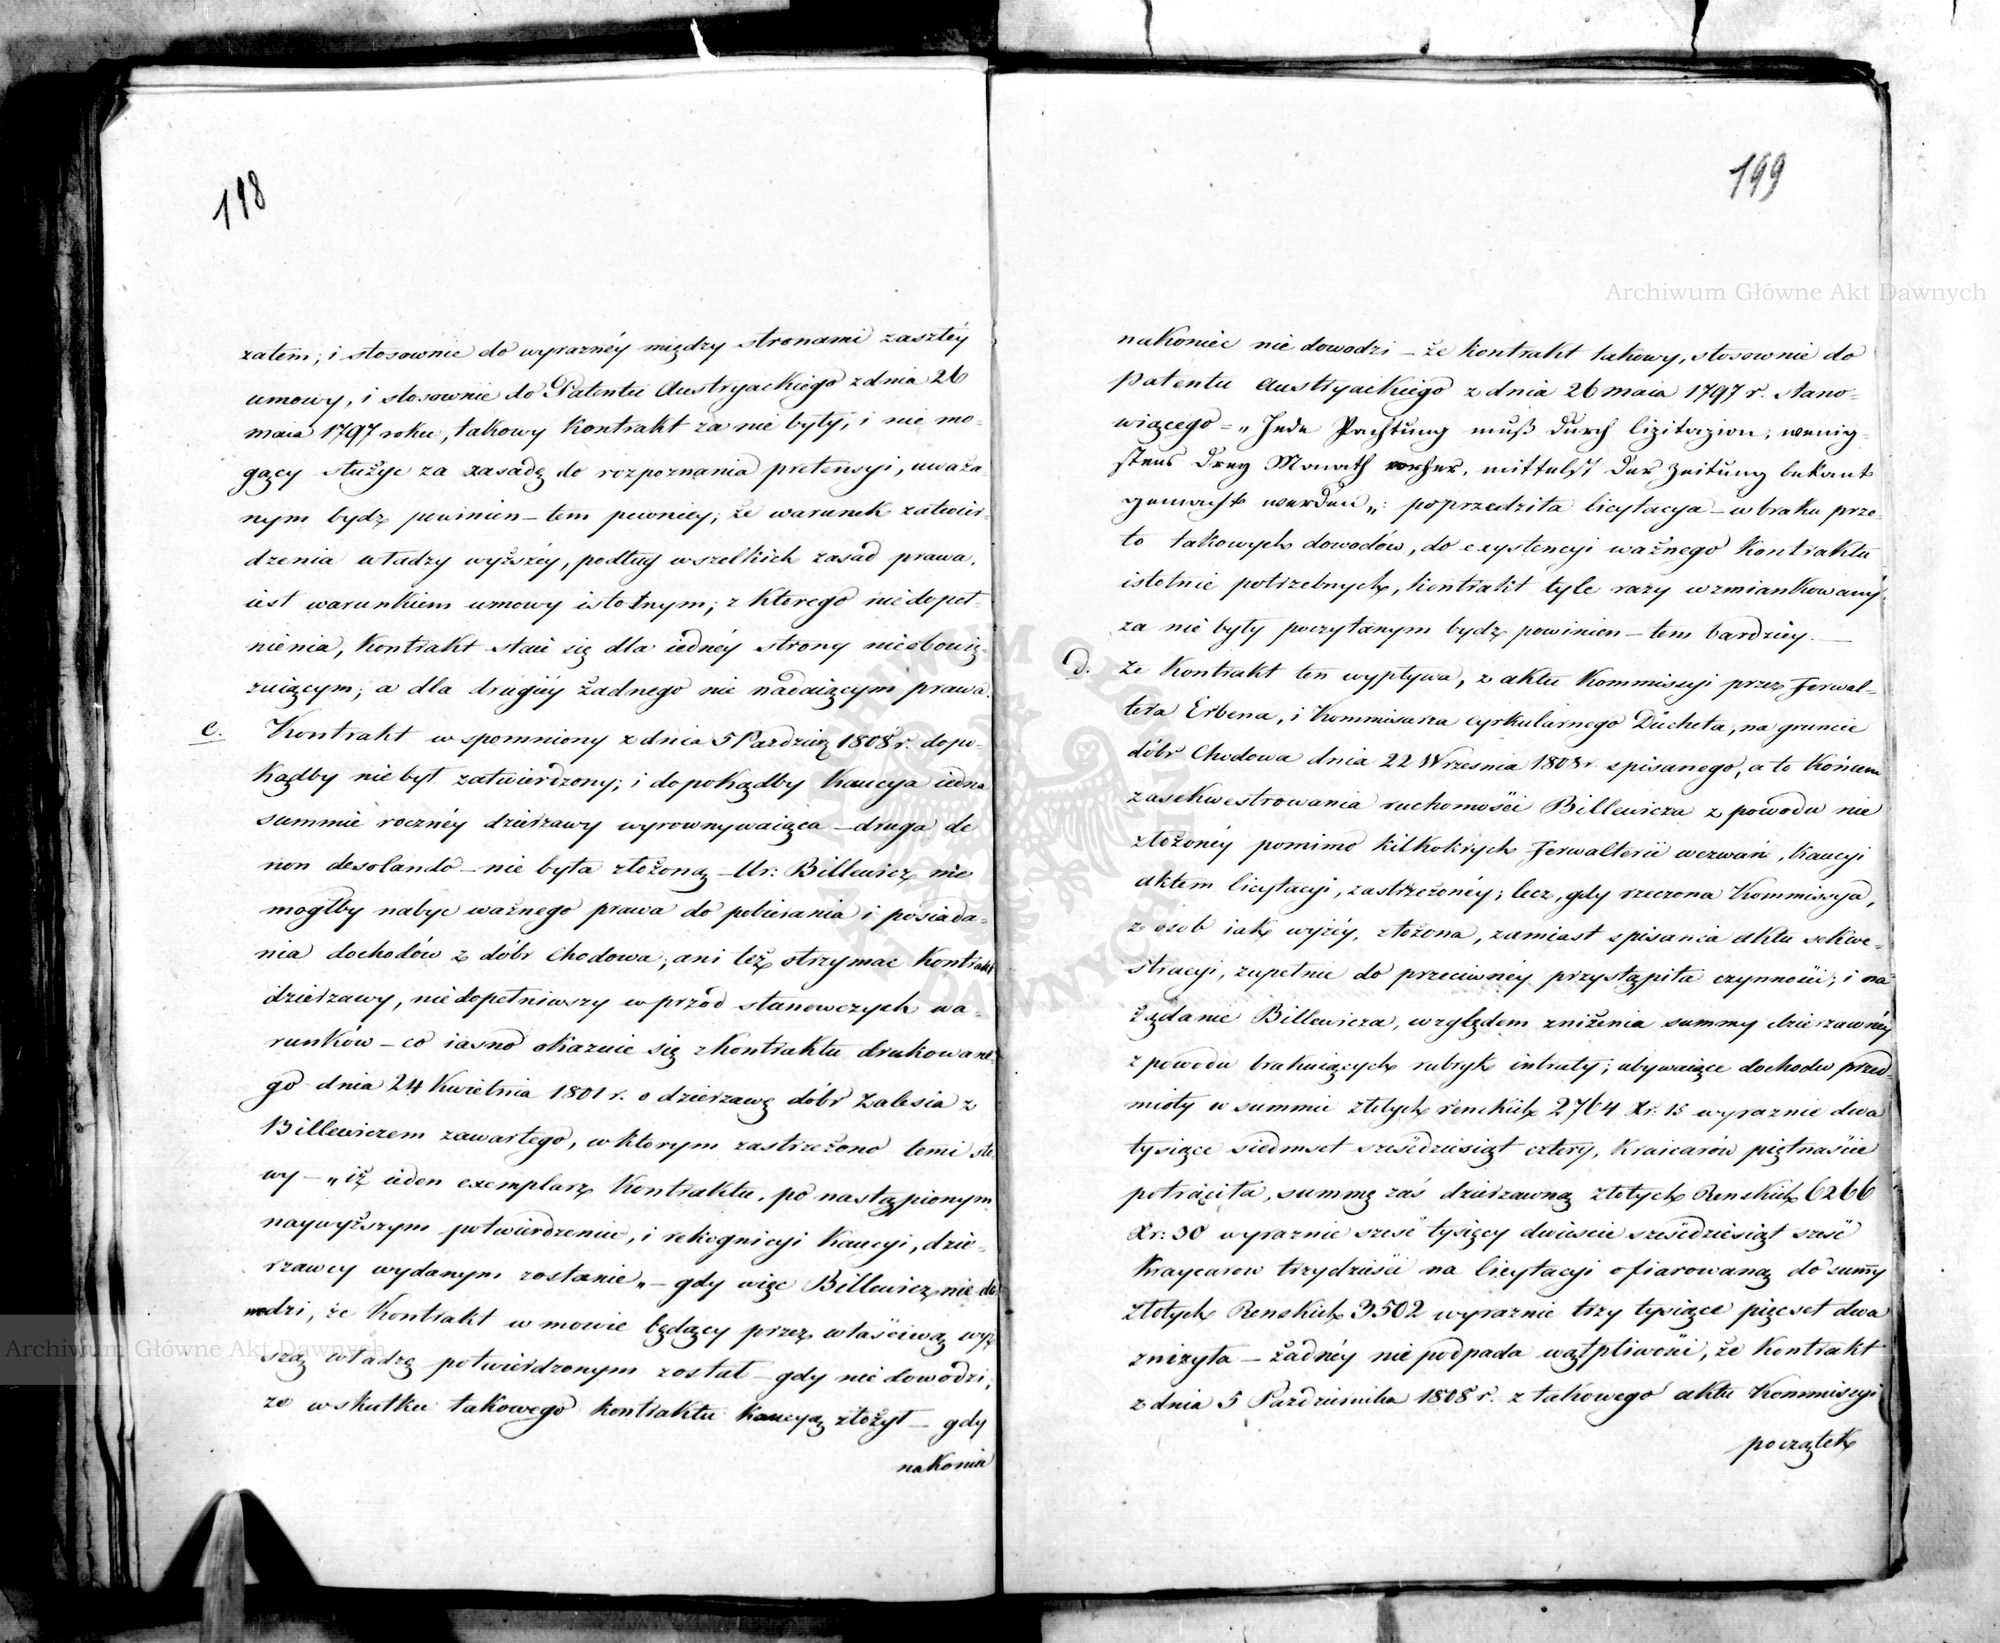 198
zatem, i stosownie do wyrazney między stronami zaszłéy
umowy, i stosownie do Patentu Austryackiego z dnia 26
maia 1797 roku, takowy Kontrakt za nie były, i nie mo-
gący służyc za zasadę do rozpoznania pretensyi, uważa-
nym bydz powinien – tem pewniey, że warunek zatwier-
dzenia władzy wyższéy, podług wszelkich zasad prawa,
iest warunkiem umowy istotnym, z którego niedopeł-
nienia, Kontrakt staie się dla iednéy strony nieobowią-
zuiącym, a dla drugiey żadnego nie nadaiącym prawa.
c. Kontrakt wspomniony z dnia 5 Pazdzier 1808 r. dopo-
kądby nie był zatwierdzony; i dopokądby Kaucya iedna
summie roczney dzierzawy wyrownywaiąca – druga de
non desolando – nie była złożoną – Ur: Billewicz nie
mogłby nabyc ważnego prawa do pobierania i posiada-
nia dochodów z dóbr Chodowa, ani też otrzymac Kontrakt
dzierzawy, niedopełniwszy wprzód stanowczych wa-
runków – co iasno okazuie się z Kontraktu drukowane-
go dnia 24 Kwietnia 1801 r. o dzierzawę dóbr Zalesia z
Billewiczem zawartego, w ktorym zastrzeżono temi sło-
wy – „iż ieden exemplarz Kontraktu, po nastąpionym
naywyższym potwierdzeniu, i rekognicyi Kaucyi, dzie-
rzawcy wydanym zostanie„ – gdy więc Billewicz nie do-
wodzi, że Kontrakt w mowie będący przez właściwą wyż-
szą władzę potwierdzonym został – gdy nie dowodzi,
ze wskutku takowego kontraktu kaucyą złożył – gdy
nakoniec
199
nakoniec nie dowodzi – że kontrakt takowy, stosownie do
Patentu Austryackiego z dnia 26 maia 1797 r. stano-
wiącego = „Jede Pachtung muß durch lizitazion, wenig-
stens drey Monath vorher, mittelst der zeitung bekant
gemacht werden„: poprzedziła licytacya – w braku prze-
to takowych dowodów, do exystencyi ważnego Kontraktu
istotnie potrzebnych, kontrakt tyle razy wzmiankowany,
za nie były poczytanym bydz powinien – tem bardziey. –
d. że Kontrakt ten wypływa, z aktu Kommissyi przez Ferwal-
tera Erbena, i Kommisarza cyrkularnego Ducheta, na gruncie
dóbr Chodowa dnia 22 Wrzesnia 1808 r. spisanego, a to końcem
zasekwestrowania ruchomości Billewicza z powodu nie
złożonéy pomimo kilkokrych Ferwalterii wezwań, kaucyi
aktem licytacyi, zastrzeżonéy; lecz, gdy rzeczona Kommissya,
z osob iak wyżéy, złożona, zamiast spisania aktu sekwe-
stracyi, zupełnie do przeciwnéy przystąpiła czynności; i na
żądanie Billewicza, względem zniżenia summy dzierzawnéy
z powodu brakuiących rubryk intraty; ubywaiące dochodu przed-
mioty w summie złotych renskich 2764 Xr. 15 wyraznie dwa
tysiące siedmset sześcdziesiąt cztery, Kraicarów piętnaście
potrąciła, summę zaś dzierzawną złotych Renskich 6266
Xr: 30 wyraznie sześć tysięcy dwieście sześcdziesiąt sześć
Kraycarow trzydzieści na licytacyi ofiarowaną do sum̃y
złotych Renskich 3502 wyraznie trzy tysiące pięcset dwa
znizyła – żadnéy nie podpada wątpliwości, że Kontrakt
z dnia 5 Pazdziernika 1808 r. z takowego aktu Kommissyi
początek
Archiwum Główne Akt Dawnych
Archiwum Główne Akt Dawnych
ARCHIWUM GŁÓWNE AKT DAWNYCH